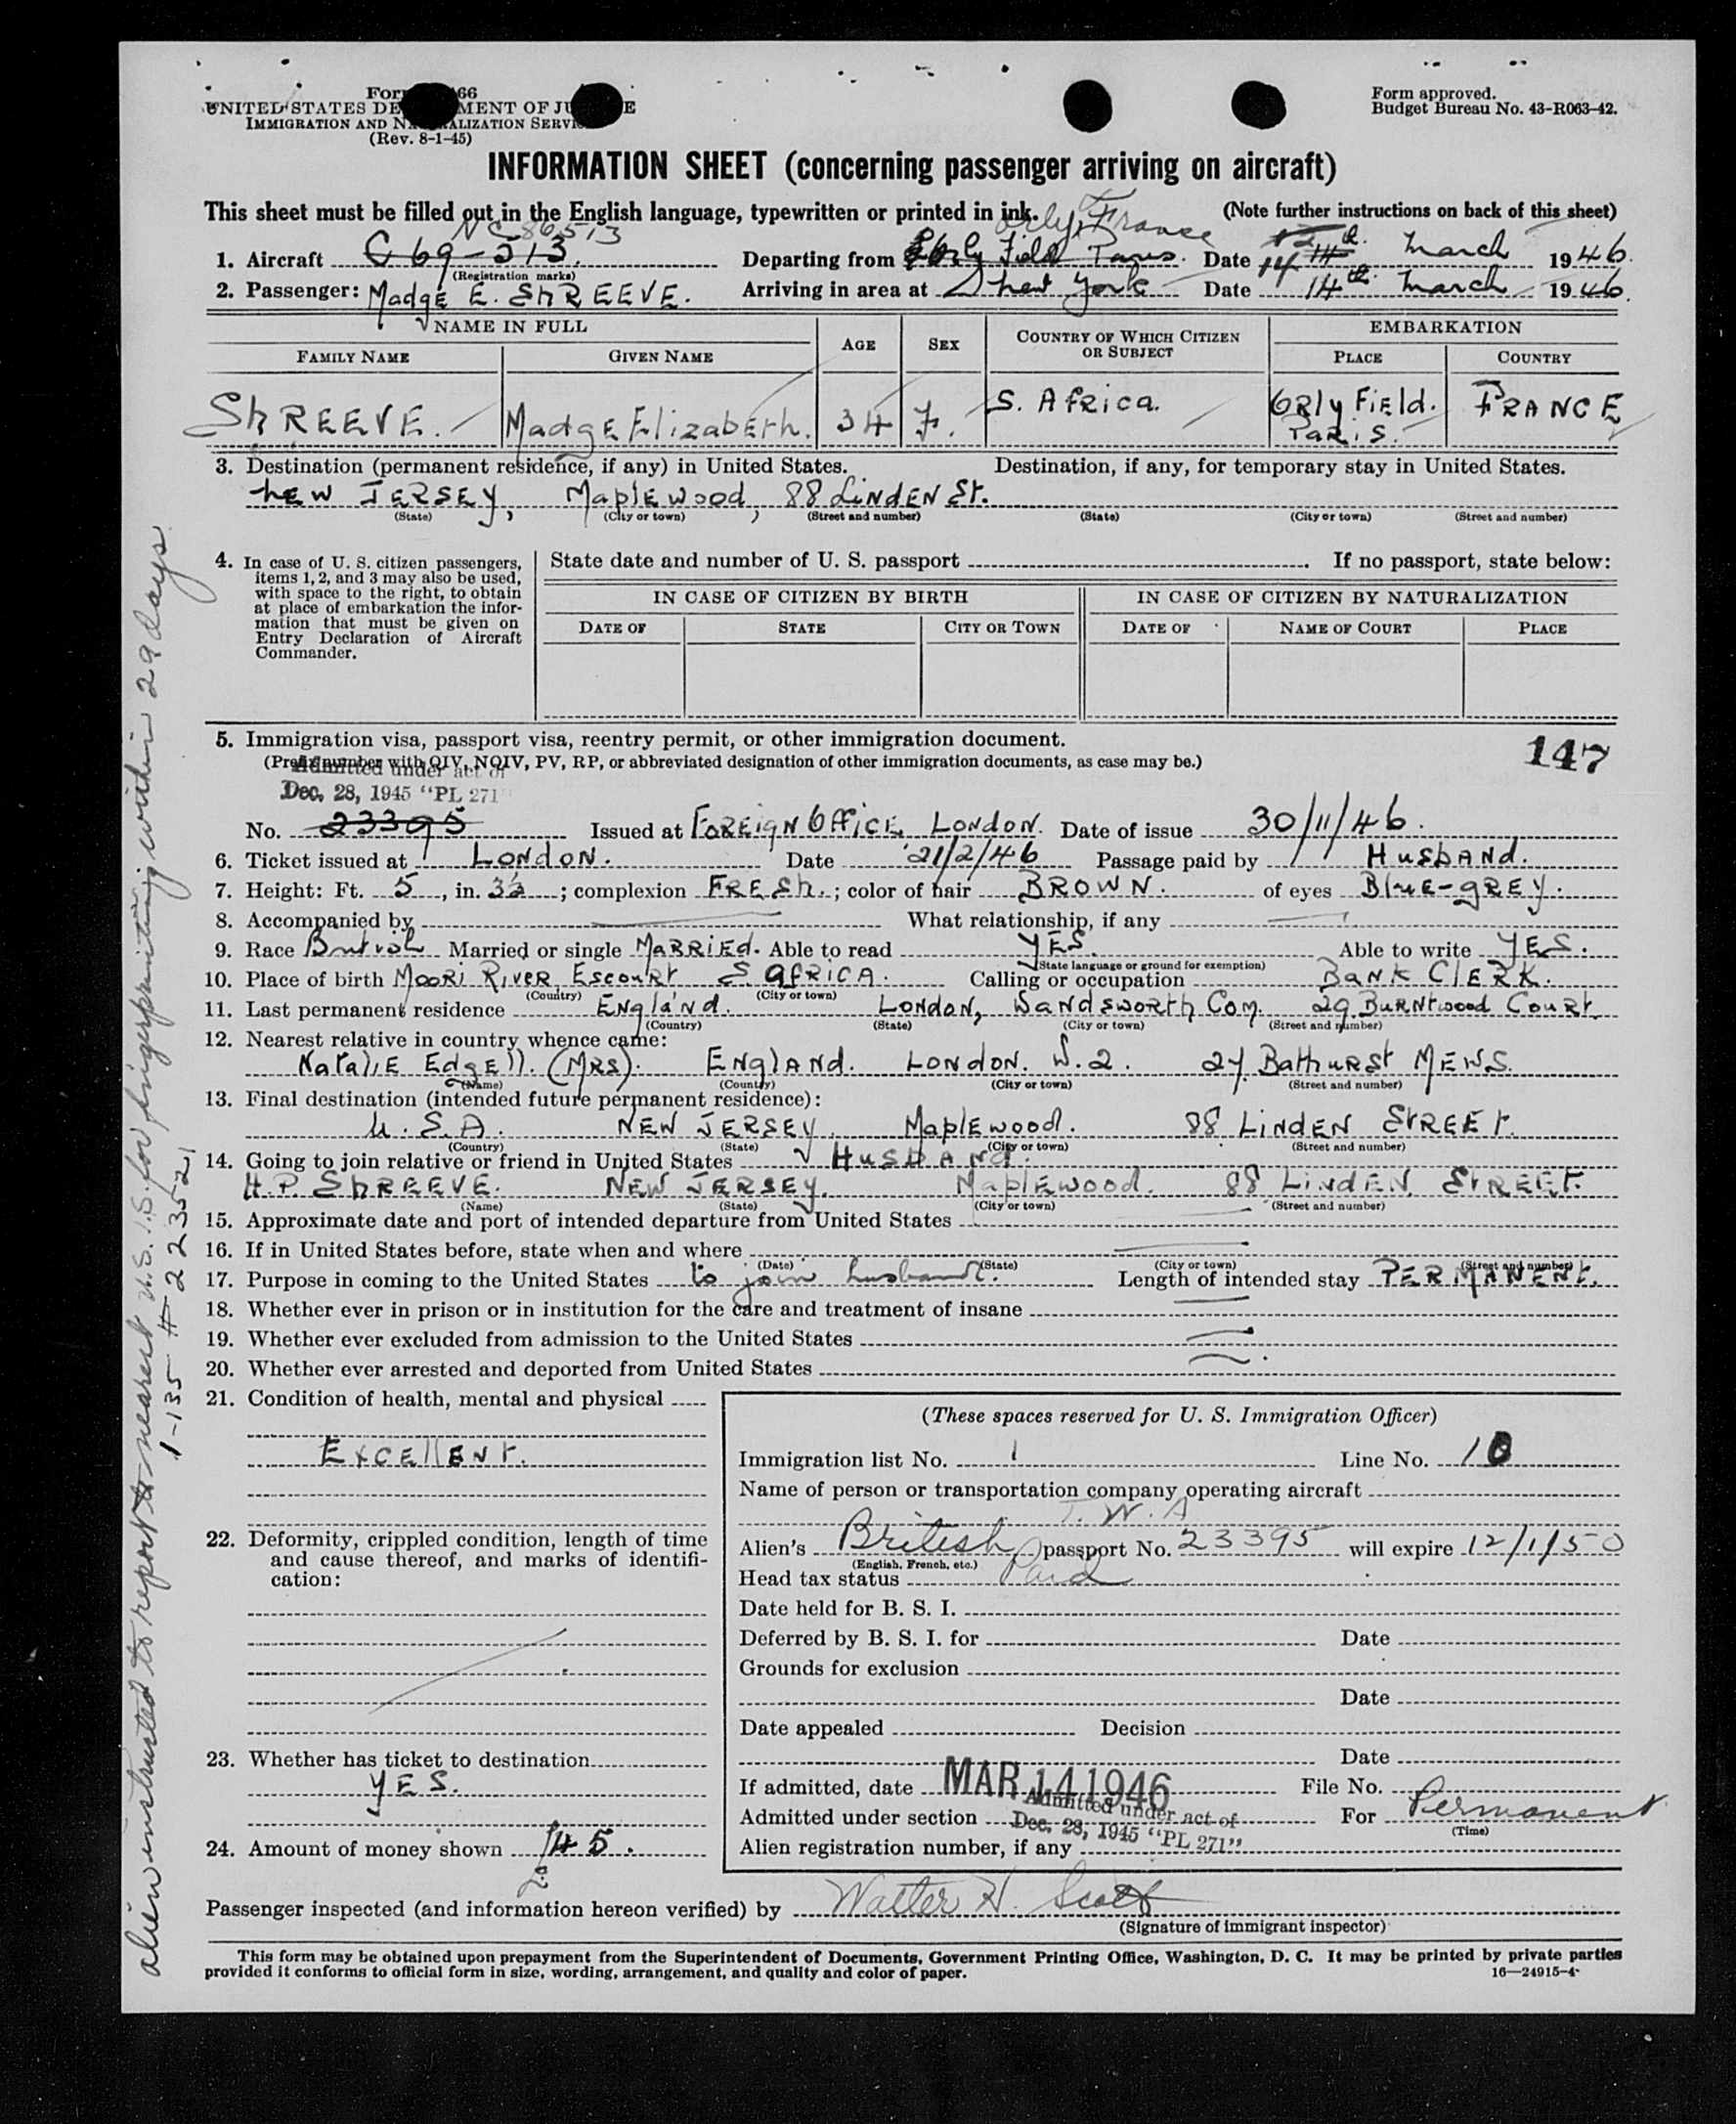 Form 66
UNITED STATES DE MENT OF JU E
IMMIGRATION AND N ALIZATION SERVI
(Rev. 8-1-45)
Form approved.
Budget Bureau No. 43-R063-42.
INFORMATION SHEET (concerning passenger arriving on aircraft)
This sheet must be filled out in the English language, typewritten or printed in ink. (Note further instructions on back of this sheet)
NC86513 Orly, France
1. Aircraft C 69-513. Departing from Orly Field Paris. Date 14 14th. March 1946.
(Registration marks)
2. Passenger: Madge E. ShREEVE. Arriving in area at New York Date 14th. March 1946.
NAME IN FULL AGE SEX COUNTRY OF WHICH CITIZEN OR SUBJECT EMBARKATION
FAMILY NAME GIVEN NAME PLACE COUNTRY
ShREEVE. Madge Elizabeth. 34 F. S. Africa. Orly Field. Paris. FRANCE
3. Destination (permanent residence, if any) in United States. Destination, if any, for temporary stay in United States.
NEW JERSEY, Maplewood, 88 LindEN St.
(State) (City or town) (Street and number) (State) (City or town) (Street and number)
4. In case of U. S. citizen passengers,
items 1, 2, and 3 may also be used,
with space to the right, to obtain
at place of embarkation the infor-
mation that must be given on
Entry Declaration of Aircraft
Commander.
State date and number of U. S. passport . If no passport, state below:
IN CASE OF CITIZEN BY BIRTH IN CASE OF CITIZEN BY NATURALIZATION
DATE OF STATE CITY OR TOWN DATE OF NAME OF COURT PLACE
5. Immigration visa, passport visa, reentry permit, or other immigration document.
(Prefix number with QIV, NQIV, PV, RP, or abbreviated designation of other immigration documents, as case may be.)
147
Admitted under act of
Dec. 28, 1945 "PL 271"
No. 23395 Issued at Foreign Office, London. Date of issue 30/11/46.
6. Ticket issued at London. Date 21/2/46 Passage paid by Husband.
7. Height: Ft. 5, in. 3½; complexion FRESh.; color of hair BROWN. of eyes Blue-gREY.
8. Accompanied by What relationship, if any
9. Race British Married or single MARRIEd. Able to read YES. Able to write YES.
(State language or ground for exemption)
10. Place of birth Mooi River, Escourt S. AfRICA. Calling or occupation BANK ClERK.
(Country) (City or town)
11. Last permanent residence England. London, Wandsworth Com. 29. Burntwood Court.
(Country) (State) (City or town) (Street and number)
12. Nearest relative in country whence came:
Natalie Edgell. (Mrs). England. London. W.2. 27. Bathurst Mews.
(Name) (Country) (City or town) (Street and number)
13. Final destination (intended future permanent residence):
U.S.A. NEW JERSEY. Maplewood. 88 LindEN StREEt.
(Country) (State) (City or town) (Street and number)
14. Going to join relative or friend in United States Husband.
H.P. ShREEVE. NEW JERSEY. Maplewood. 88 LindEN StREEt.
(Name) (State) (City or town) (Street and number)
15. Approximate date and port of intended departure from United States
16. If in United States before, state when and where
(Date) (State) (City or town) (Street and number)
17. Purpose in coming to the United States to join husband. Length of intended stay PERMANENt.
18. Whether ever in prison or in institution for the care and treatment of insane
19. Whether ever excluded from admission to the United States
20. Whether ever arrested and deported from United States
21. Condition of health, mental and physical
EXCEllENt.
22. Deformity, crippled condition, length of time
and cause thereof, and marks of identifi-
cation:
23. Whether has ticket to destination
YES.
24. Amount of money shown £45.
(These spaces reserved for U. S. Immigration Officer)
Immigration list No. 1 Line No. 10
Name of person or transportation company operating aircraft
T.W.A
Alien's British passport No. 23395 will expire 12/1/50
(English, French, etc.)
Head tax status Paid
Date held for B. S. I.
Deferred by B. S. I. for Date
Grounds for exclusion
Date
Date appealed Decision
Date
If admitted, date MAR 14 1946 File No.
Admitted under section Admitted under act of Dec. 28, 1945 "PL 271" For Permanent
(Time)
Alien registration number, if any
Passenger inspected (and information hereon verified) by Walter H. Scott
(Signature of immigrant inspector)
This form may be obtained upon prepayment from the Superintendent of Documents, Government Printing Office, Washington, D. C. It may be printed by private parties
provided it conforms to official form in size, wording, arrangement, and quality and color of paper. 16—24915-4
alien instructed to report to nearest U.S.I.S. for fingerprinting within 29 days.
1-135 # 223521